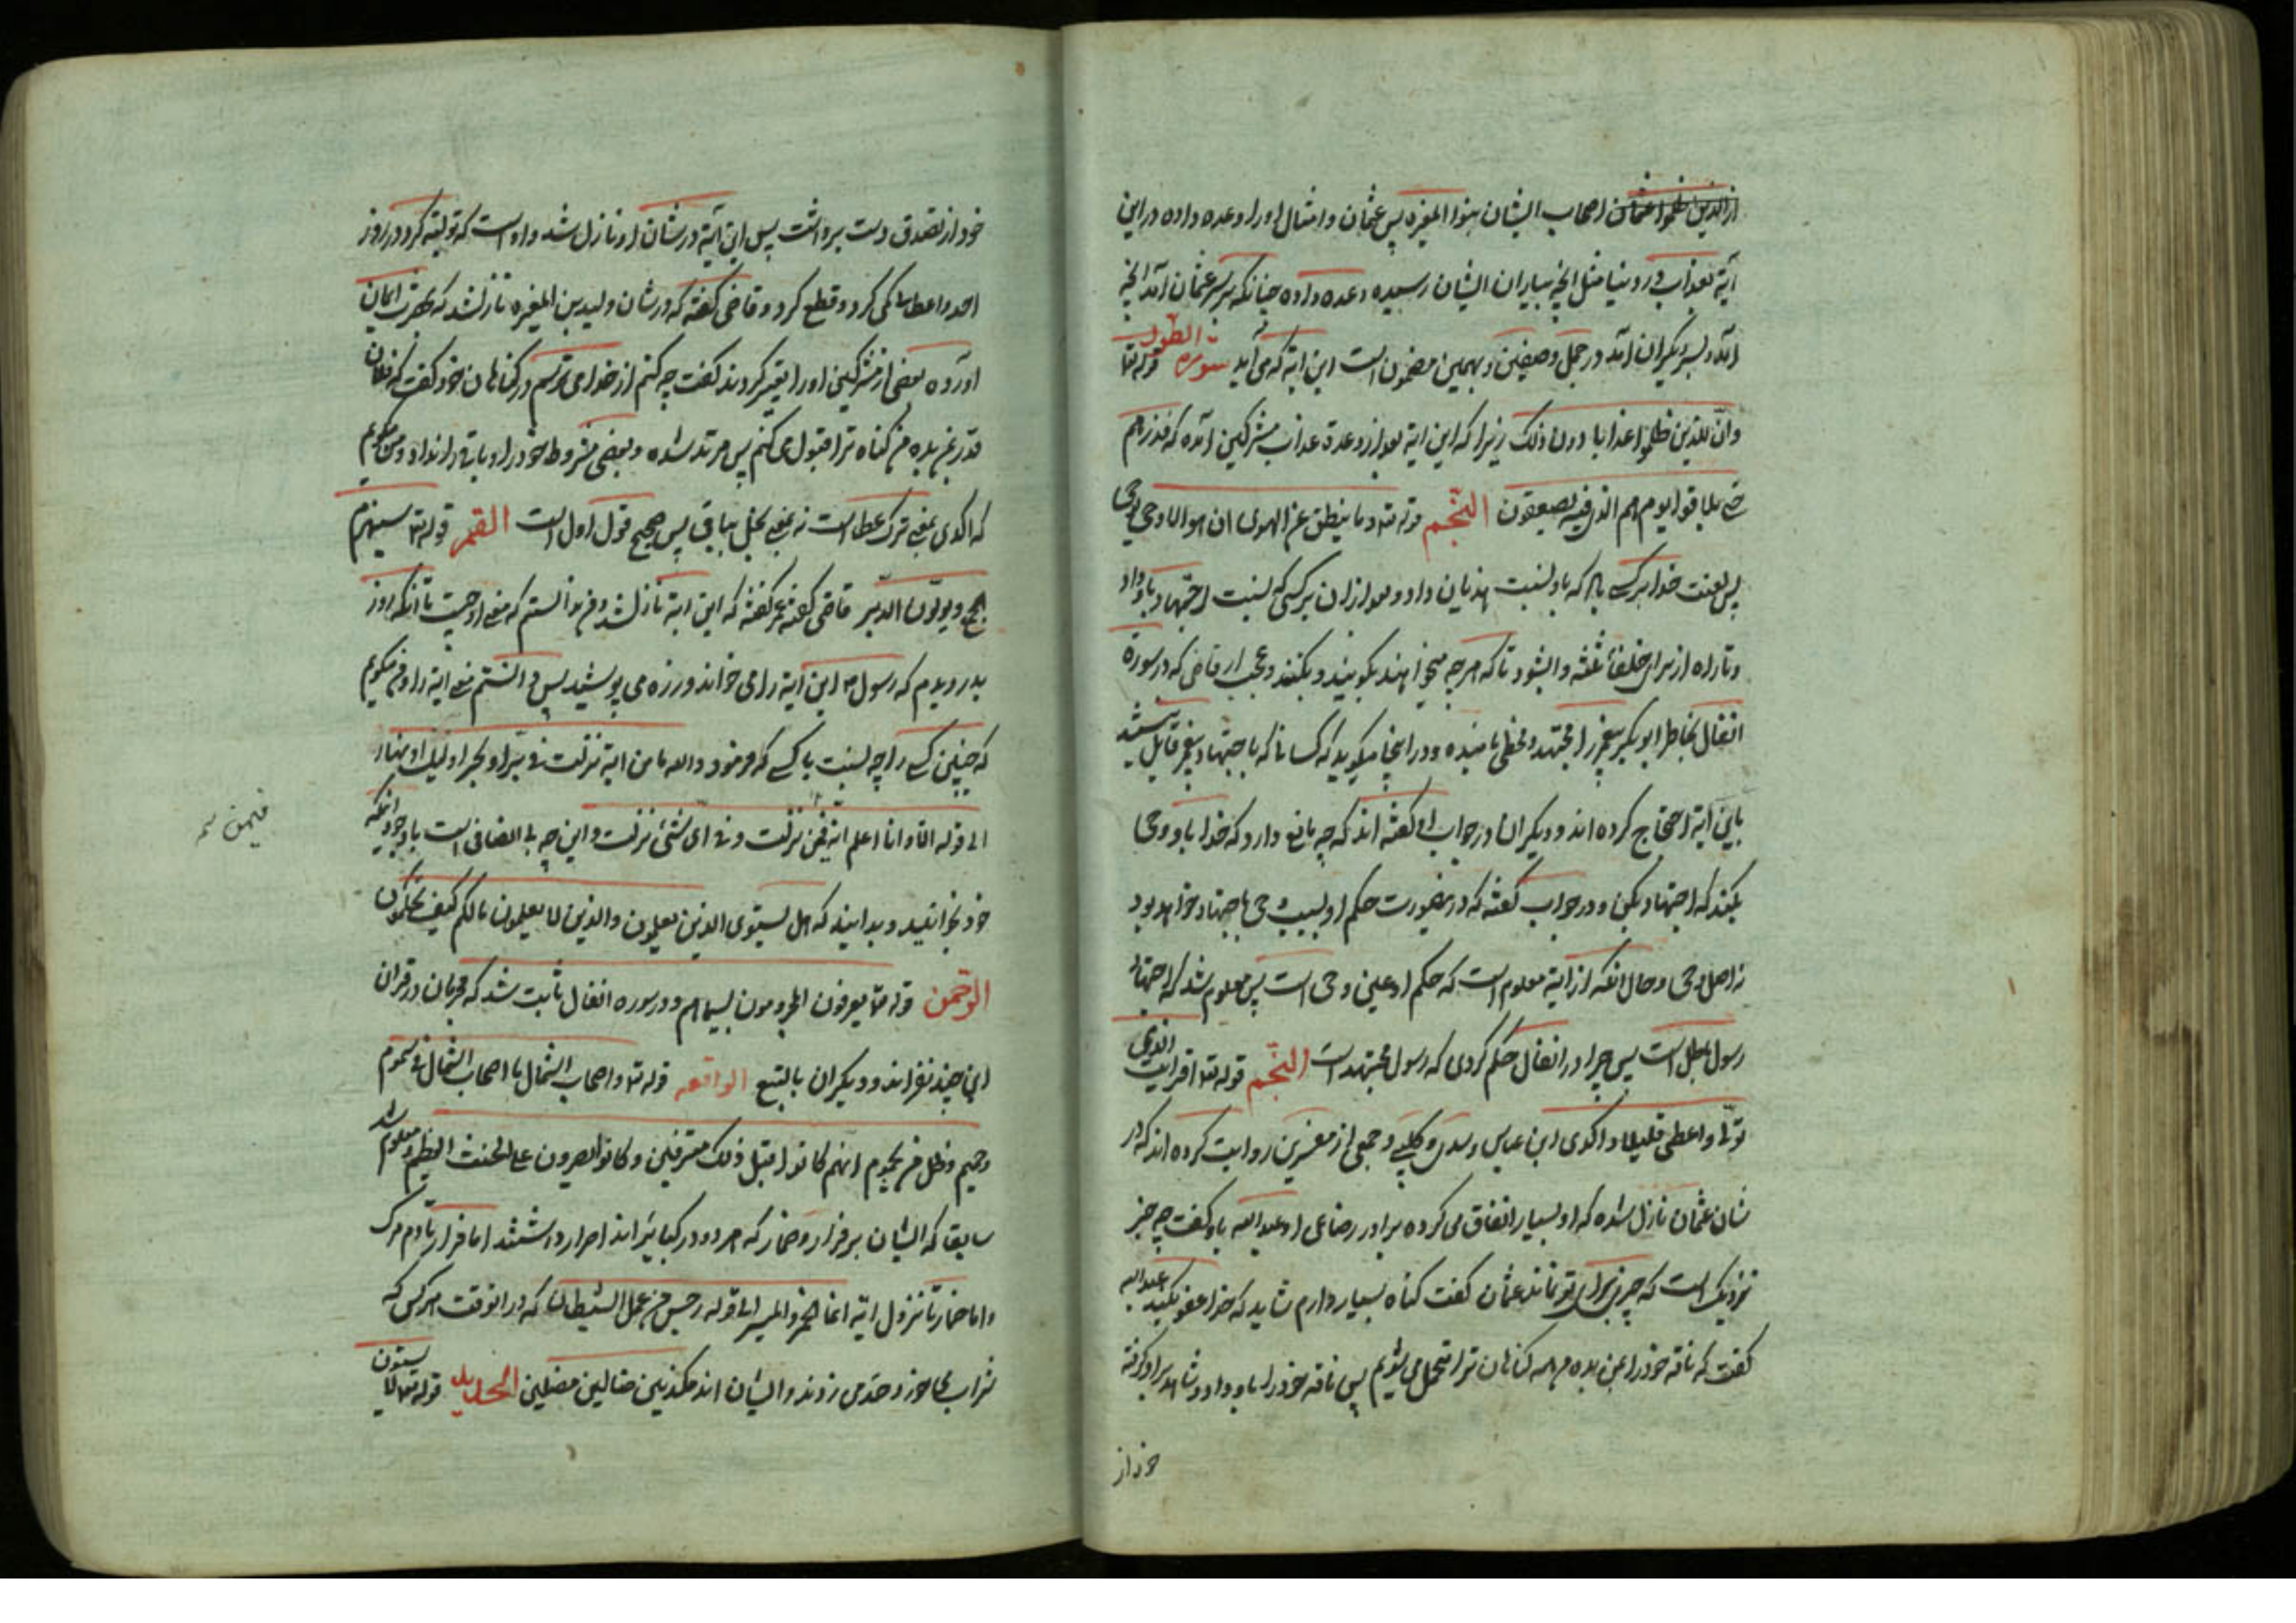 از الذین ظلموا عثمان اصحاب ایشان بنوا المغیره پس عثمان و امثال او را وعده داده در این
آیة بعذاب در دنیا مثل انچه بیاران ایشان رسیده وعده داده چنانکه بر سر عثمان آمد انچه
آمد و بسر دیگران آمد در جمل و صفین و بهمین مضمون است این ایة که می آید سورة الطور قوله تعا
وان للذین ظلموا عذابا دون ذلک زیرا که این ایة بعد از وعدة عذاب مشرکین آمده که فذرهم
حتی یلاقوا یومهم الذی فیه یصعقون النجم قوله تعا وما ینطق عن الهوی ان هو الا وحی یوحی
پس لعنت خدا بر کسی باد که باو نسبت هذیان داد و بعد ازان بر کسی که نسبت اجتهاد باو داد
و تا راه از برای خلفاء ثلثه وا شود تا که هر چه میخواهند بگویند و بکنند و عجب از قاضی که در سورة
انفال بخاطر ابوبکر پیغمبر را مجتهد مخطی نامیده و در اینجا میگوید که کسانی که باجتهاد پیغمبر قایل نیستند
باین ایة احتجاج کرده اند و دیگران در جواب او گفته اند که چه مانع دارد که خدا باو وحی
بکند که اجتهاد بکن و در جواب گفته که درینصورت حکم او بسبب وحی باجتهاد خواهد بود
نه اصل وحی و حال انکه از ایة معلوم است که حکم او عین وحی است پس معلوم شد که اجتهاد
رسول باطل است پس چرا در انفال حکم کردی که رسول مجتهد است النجم قوله تعا افرایت الذی
تولی واعطی قلیلا واکدی ابن عباس و سدی و کلبی و جمعی از مفسرین روایت کرده اند که در
شان عثمان نازل شده که او بسیار انفاق می کرده برادر رضاعی او عبد الله باو گفت چه چیز
نزدیک است که چیزی برای تو نماند عثمان گفت گناه بسیار دارم شاید که خدا عفو بکند عبدالله
گفت که ناقه خود را بمن بده من همه گناهان ترا متحمل می شویم پس ناقه خود را باو داد و شاهد بر او گرفته
خود از
خود از تصدق دست برداشت پس این آیة در شان او نازل شد و او است که تولیته کرد در روز
احد و اعطای کمی کرد و قطع کرد و قاضی گفته که در شان ولید بن المغیره نازل شد که بحضرت ایمان
اورده بعضی از مشرکین او را تعییر کردند گفت چه کنم از خدا می ترسم در گناهان خود گفت که فلان
قدر بمن بده من گناه ترا قبول می کنم پس مرتد شده و بعضی مشروط خود را داد باقی را نداد و من میگویم
که اکدی بمعنی ترک عطا است نه بمعنی بخل بباقی پس صحیح قول اول است القمر قوله تعا سیهزم
الجمع ویولون الدبر قاضی گفته عمر گفته که این ایة نازل شد و من ندانستم که معنی او چیست تا انکه روز
بدر دیدم که رسول ص این آیة را می خواند و زره می پوشید پس دانستم معنی ایة را و من میگویم
که چنین کسی را چه نسبت با کسی که فرمود والله ما من ایة نزلت فی بر او بحر او لیل او نهار
الی قوله الا وانا اعلم انه فیمن نزلت وفی ای شیء نزلت و این چه بی انصافی است باوجود انکه
خود بخوانید و بدانید که هل یستوی الذین یعلمون والذین لا یعلمون ما لکم کیف تحکمون
الرحمن قوله تعا یعرفون المجرمون بسیماهم و در سوره انفال ثابت شد که مجرمان در قران
این چند نفر اند و دیگران بالتبع الواقعه قوله تعا واصحاب الشمال ما اصحاب الشمال فی سموم
وحمیم وظل من یحموم انهم کانوا قبل ذلک مترفین وکانوا یصرون علی الحنث العظیم معلوم شد
سابقا که ایشان بر فرار و خمار که هر دو در کبایر اند اصرار داشتند اما فرار تا دم مرگ
و اما خمار تا نزول ایة انما الخمر والمیسر الی قوله رجس من عمل الشیطان که در انوقت هر کس که
شراب می خورد حد می زدند و ایشان اند مکذبین ضالین مضلین الحدید قوله تعا لا یستوی